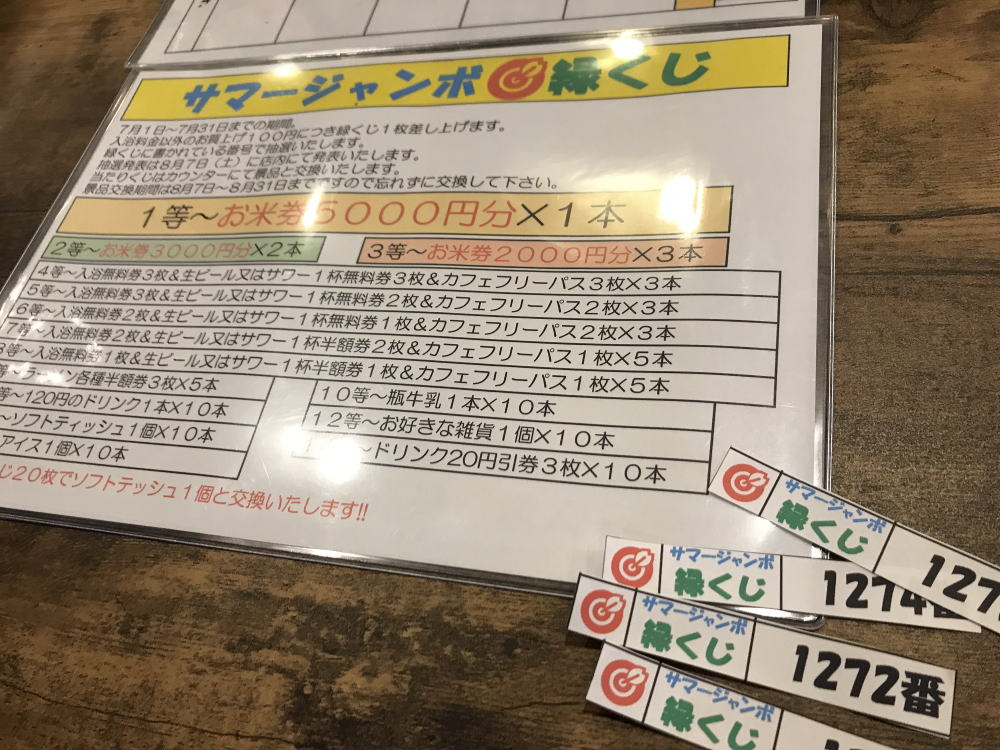 サマージャンボ緑くじ
7月1日~7月31日までの期間。
入浴料金以外のお買上げ100円につき緑くじ1枚差し上げます。
緑くじに書かれている番号で抽選いたします。
抽選発表は8月7日(土)に店内にて発表いたします。
当たりくじはカウンターにて景品と交換いたします。
景品交換期間は8月7日~8月31日まででですので忘れずに交換して下さい。
1等~お米券5000円分×1本
2等~お米券3000円分×2本
3等~お米券2000円分×3本
4等~入浴無料券3枚&生ビール又はサワー1杯無料券3枚&カフェフリーパス3枚×3本
5等~入浴無料券3枚&生ビール又はサワー1杯無料券2枚&カフェフリーパス2枚×3本
6等~入浴無料券2枚&生ビール又はサワー1杯無料券1枚&カフェフリーパス2枚×3本
7等~入浴無料券2枚&生ビール又はサワー1杯半額券2枚&カフェフリーパス1枚×5本
8等~入浴無料券1枚&生ビール又はサワー1杯半額券1枚&カフェフリーパス1枚×5本
等~ラーメン各種半額券3枚×5本
10等~瓶牛乳1本×10本
等~120円のドリンク1本×10本
12等~お好きな雑貨1個×10本
~ソフトティッシュ1個×10本
~ドリンク20円引券3枚×10本
アイス1個×10本
じ20枚でソフトテッシュ1個と交換いたします!!
サマージャンボ
緑くじ
127
サマージャンボ
緑くじ
1274番
サマージャンボ
緑くじ
1272番
サマージャンボ
緑くじ